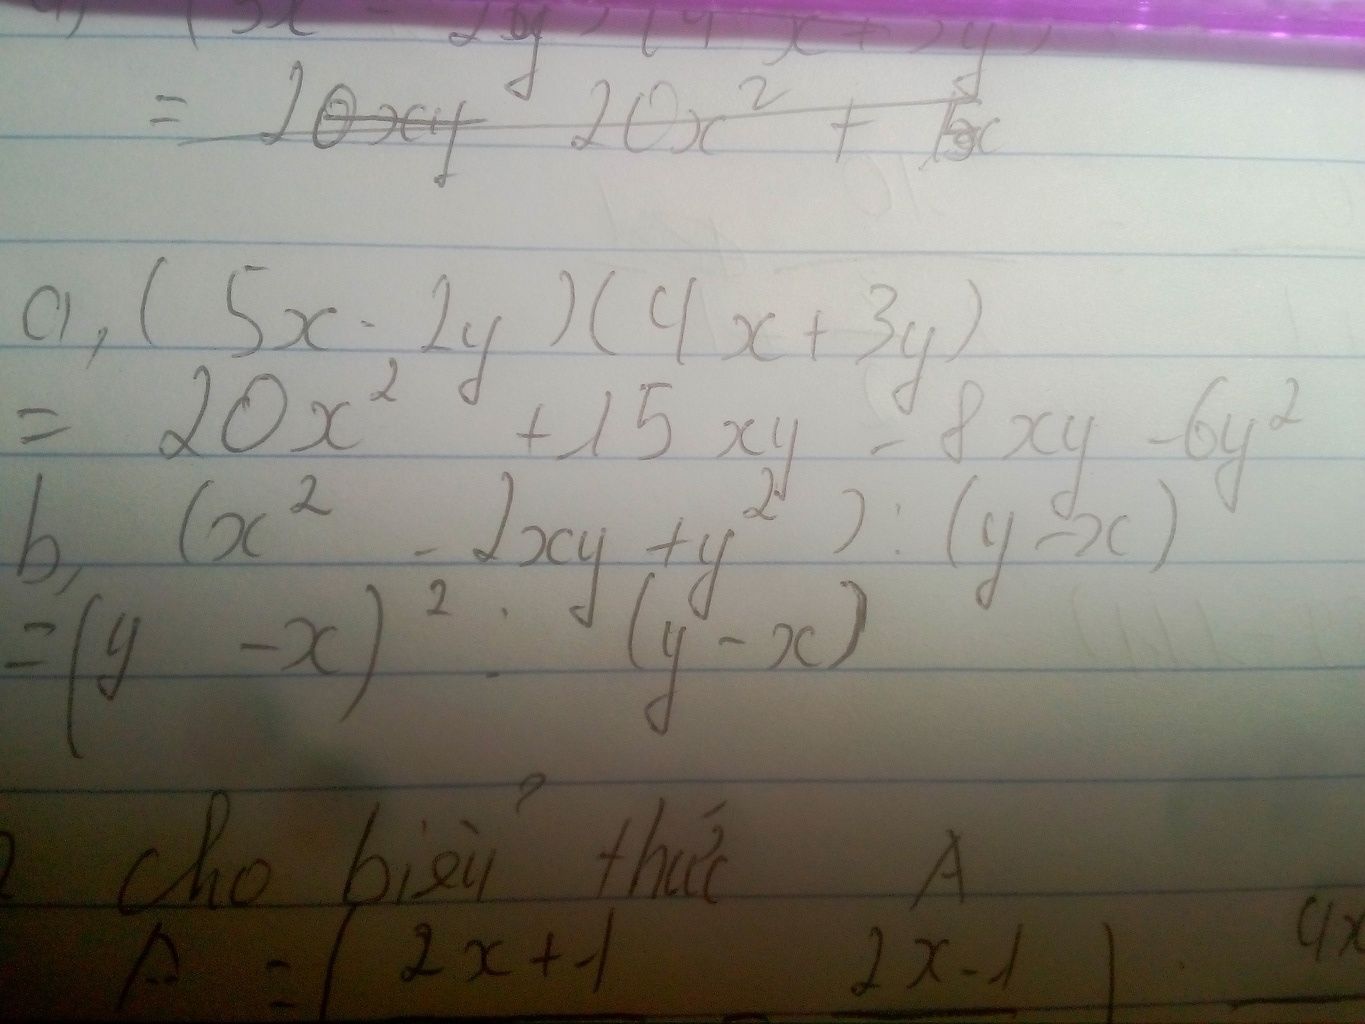 (5x - 2y)(4x + 3y)
= 20xy 20x² + 15x
a, (5x - 2y)(4x + 3y)
= 20x² + 15xy - 8xy - 6y²
b, (x² - 2xy + y²) : (y - x)
= (y - x)² : (y - x)
2 cho biểu thức A
A = ( 2x+1 2x-1 ) : 4x